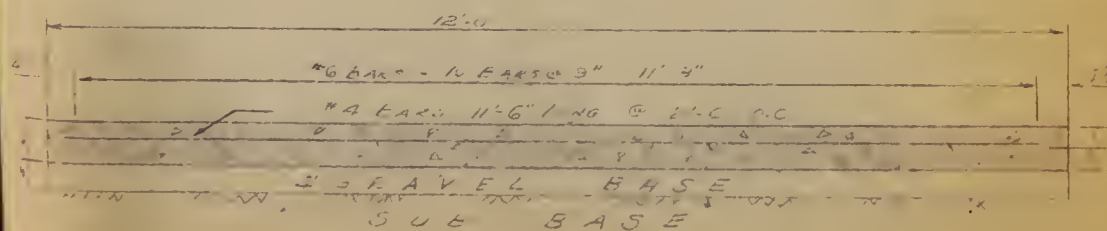 12'-0
#6 BARS - 16 BARS @ 9" 11'-4"
#4 BARS 11'-6" LNG @ 2'-0 O.C
GRAVEL BASE
SUB BASE